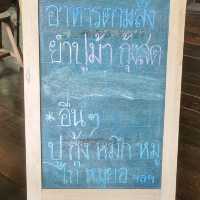 อาหารตามสั่ง
ยำปูม้า กุ้งสด
* อื่นๆ
ปู กุ้ง หมึก หมู
ไก่ หมูยอ ฯลฯ